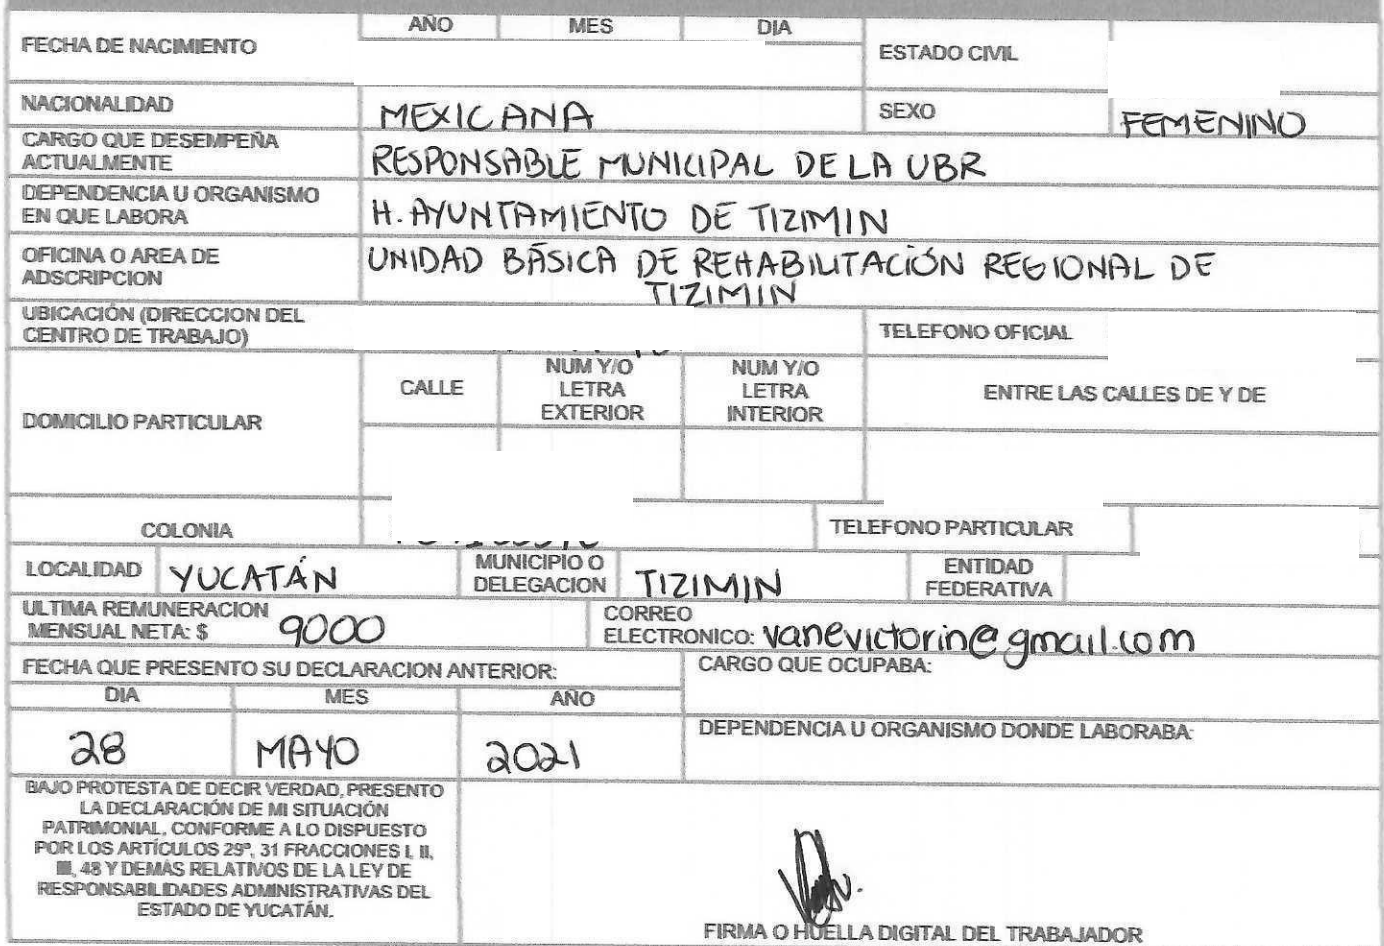 AÑO MES DIA
FECHA DE NACIMIENTO ESTADO CIVIL
NACIONALIDAD MEXICANA SEXO FEMENINO
CARGO QUE DESEMPEÑA
ACTUALMENTE RESPONSABLE MUNICIPAL DE LA UBR
DEPENDENCIA U ORGANISMO
EN QUE LABORA H. AYUNTAMIENTO DE TIZIMIN
OFICINA O AREA DE
ADSCRIPCION UNIDAD BÁSICA DE REHABILITACIÓN REGIONAL DE
TIZIMIN
UBICACIÓN (DIRECCION DEL
CENTRO DE TRABAJO) TELEFONO OFICIAL
DOMICILIO PARTICULAR
CALLE
NUM Y/O
LETRA
EXTERIOR
NUM Y/O
LETRA
INTERIOR
ENTRE LAS CALLES DE Y DE
COLONIA TELEFONO PARTICULAR
LOCALIDAD YUCATÁN
MUNICIPIO O
DELEGACION TIZIMIN
ENTIDAD
FEDERATIVA
ULTIMA REMUNERACION
MENSUAL NETA: $ 9000
CORREO
ELECTRONICO: vanevictorin@gmail.com
FECHA QUE PRESENTO SU DECLARACION ANTERIOR:
DIA MES AÑO
28 MAYO 2021
CARGO QUE OCUPABA:
DEPENDENCIA U ORGANISMO DONDE LABORABA:
BAJO PROTESTA DE DECIR VERDAD, PRESENTO
LA DECLARACIÓN DE MI SITUACIÓN
PATRIMONIAL, CONFORME A LO DISPUESTO
POR LOS ARTÍCULOS 29º, 31 FRACCIONES I, II,
III, 48 Y DEMÁS RELATIVOS DE LA LEY DE
RESPONSABILIDADES ADMINISTRATIVAS DEL
ESTADO DE YUCATÁN.
FIRMA O HUELLA DIGITAL DEL TRABAJADOR